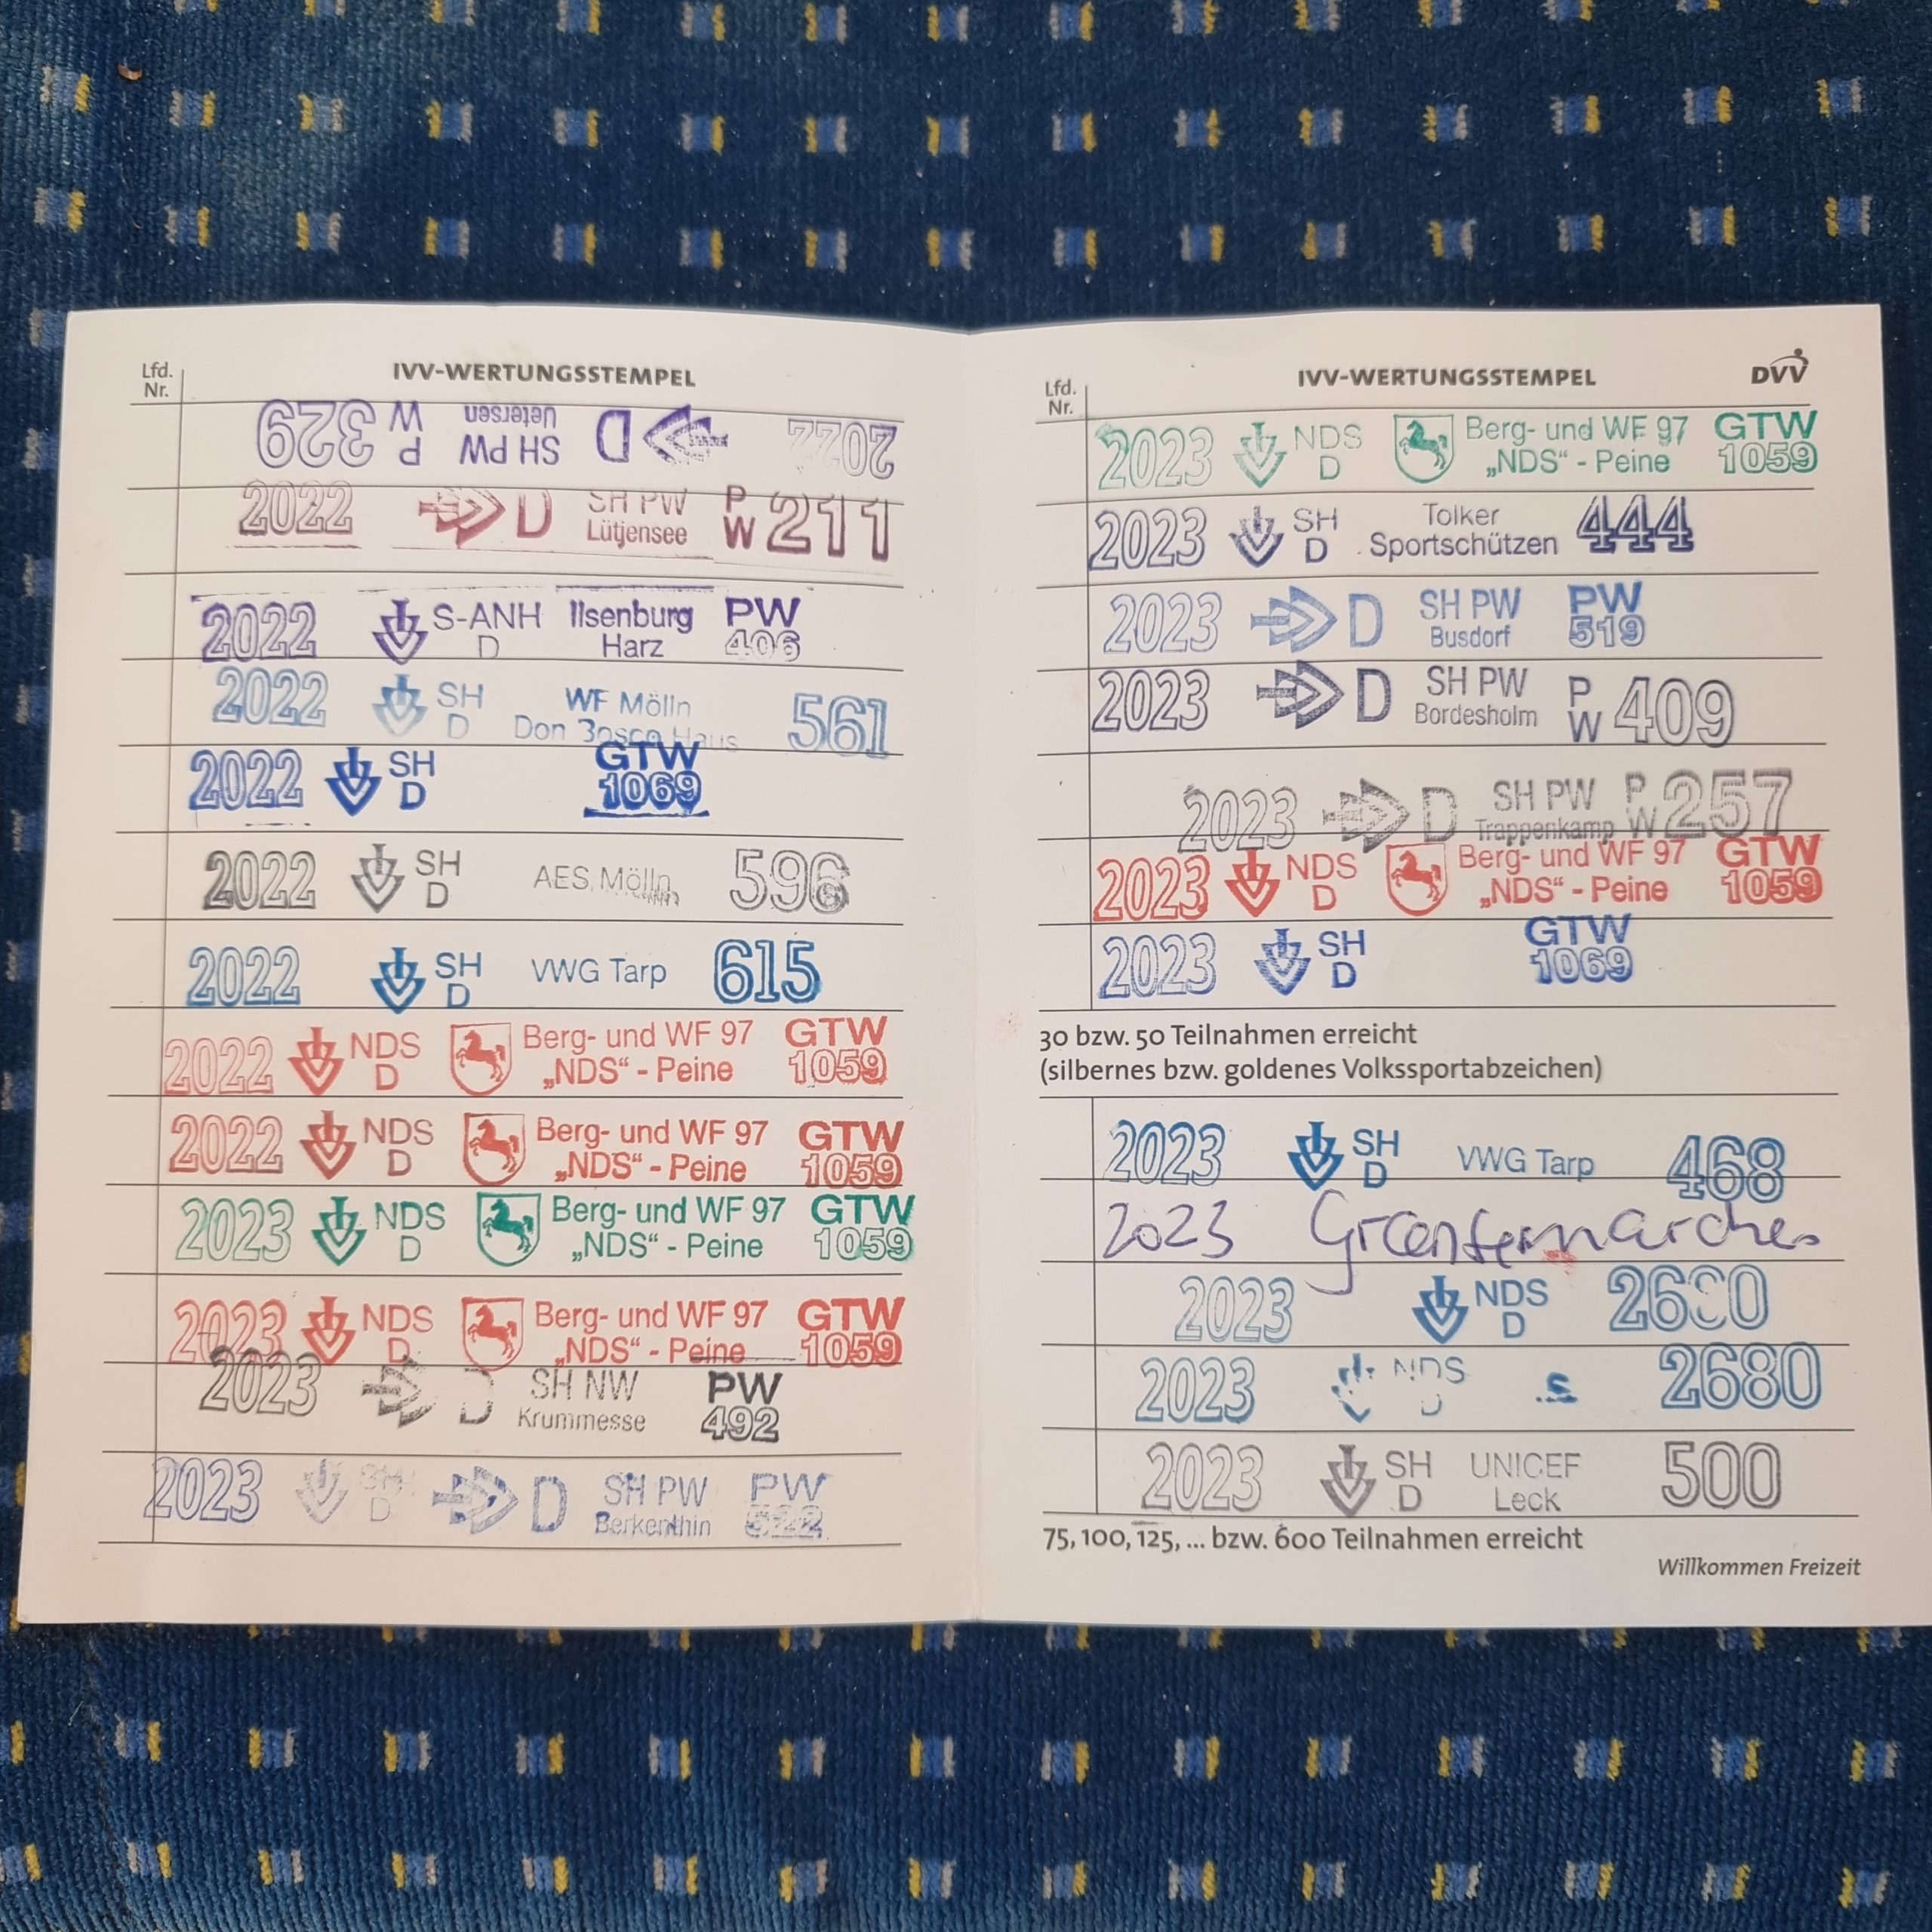 Lfd.
Nr.
IVV-WERTUNGSSTEMPEL
2022 D SH PW Uetersen P W 329
2022 D SH PW Lütjensee P W 211
2022 S-ANH D Ilsenburg Harz PW 406
2022 SH D WF Mölln Don Bosco Haus 561
2022 SH D GTW 1069
2022 SH D AES Mölln 596
2022 SH D VWG Tarp 615
2022 NDS D Berg- und WF 97 „NDS“ - Peine GTW 1059
2022 NDS D Berg- und WF 97 „NDS“ - Peine GTW 1059
2023 NDS D Berg- und WF 97 „NDS“ - Peine GTW 1059
2023 NDS D Berg- und WF 97 „NDS“ - Peine GTW 1059
2023 D SH NW Krummesse PW 492
2023 SH D D SH PW Berkenthin PW 522
Lfd.
Nr.
IVV-WERTUNGSSTEMPEL DVV
2023 NDS D Berg- und WF 97 „NDS“ - Peine GTW 1059
2023 SH D Tolker Sportschützen 444
2023 D SH PW Busdorf PW 519
2023 D SH PW Bordesholm P W 409
2023 D SH PW Trappenkamp P W 257
2023 NDS D Berg- und WF 97 „NDS“ - Peine GTW 1059
2023 SH D GTW 1069
30 bzw. 50 Teilnahmen erreicht
(silbernes bzw. goldenes Volkssportabzeichen)
2023 SH D VWG Tarp 468
2023
2023 NDS D 2680
2023 NDS D .s 2680
2023 SH D UNICEF Leck 500
75, 100, 125, ... bzw. 600 Teilnahmen erreicht
Willkommen Freizeit